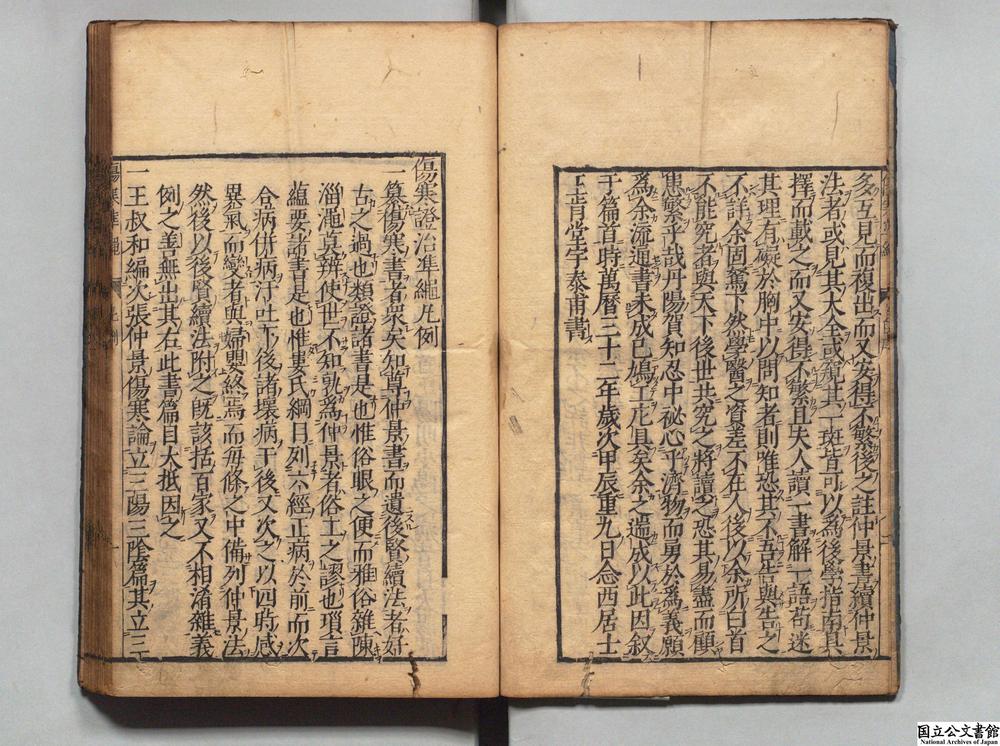 多互見而復出而又安得不繁後之註仲景書續仲景
法者或見其大全或窺其一斑皆可以為後學指南具
擇而載之而又安得不繁且夫人讀一書解一語苟迷
其理有礙於胸中以問知者則唯恐其不吾告與告之
不詳余固駑下然學醫之資差不在人後以余所曰首
不能究者與天下後世共究之將讀之恐其易盡而顧
患繁乎哉丹陽賀知忍中祕心乎濟物而勇於為義願
為余流通書未成已鳩工庀具矣余之遄成以此因敘
于篇首時萬曆三十二年歲次甲辰重九日念西居士
王肯堂宇泰甫書
傷寒證治準繩凡例
一纂傷寒書者眾矣知尊仲景書而遺後賢續法者好
古之過也類證諸書是也惟俗眼之便而雅俗雜陳
淄澠莫辨使世不知孰為仲景者俗工之謬也瑣言
蘊要諸書是也惟婁氏綱目列六經正病於前而次
合病併病汗吐下後諸壞病于後又次之以四時感
異氣而變者與婦嬰終焉而每條之中備列仲景法
然後以後賢續法附之既該括百家又不相淆雜義
例之善無出其右此書篇目大抵因之
一王叔和編次張仲景傷寒論立三陽三陰篇其立三
国立公文書館
National Archives of Japan